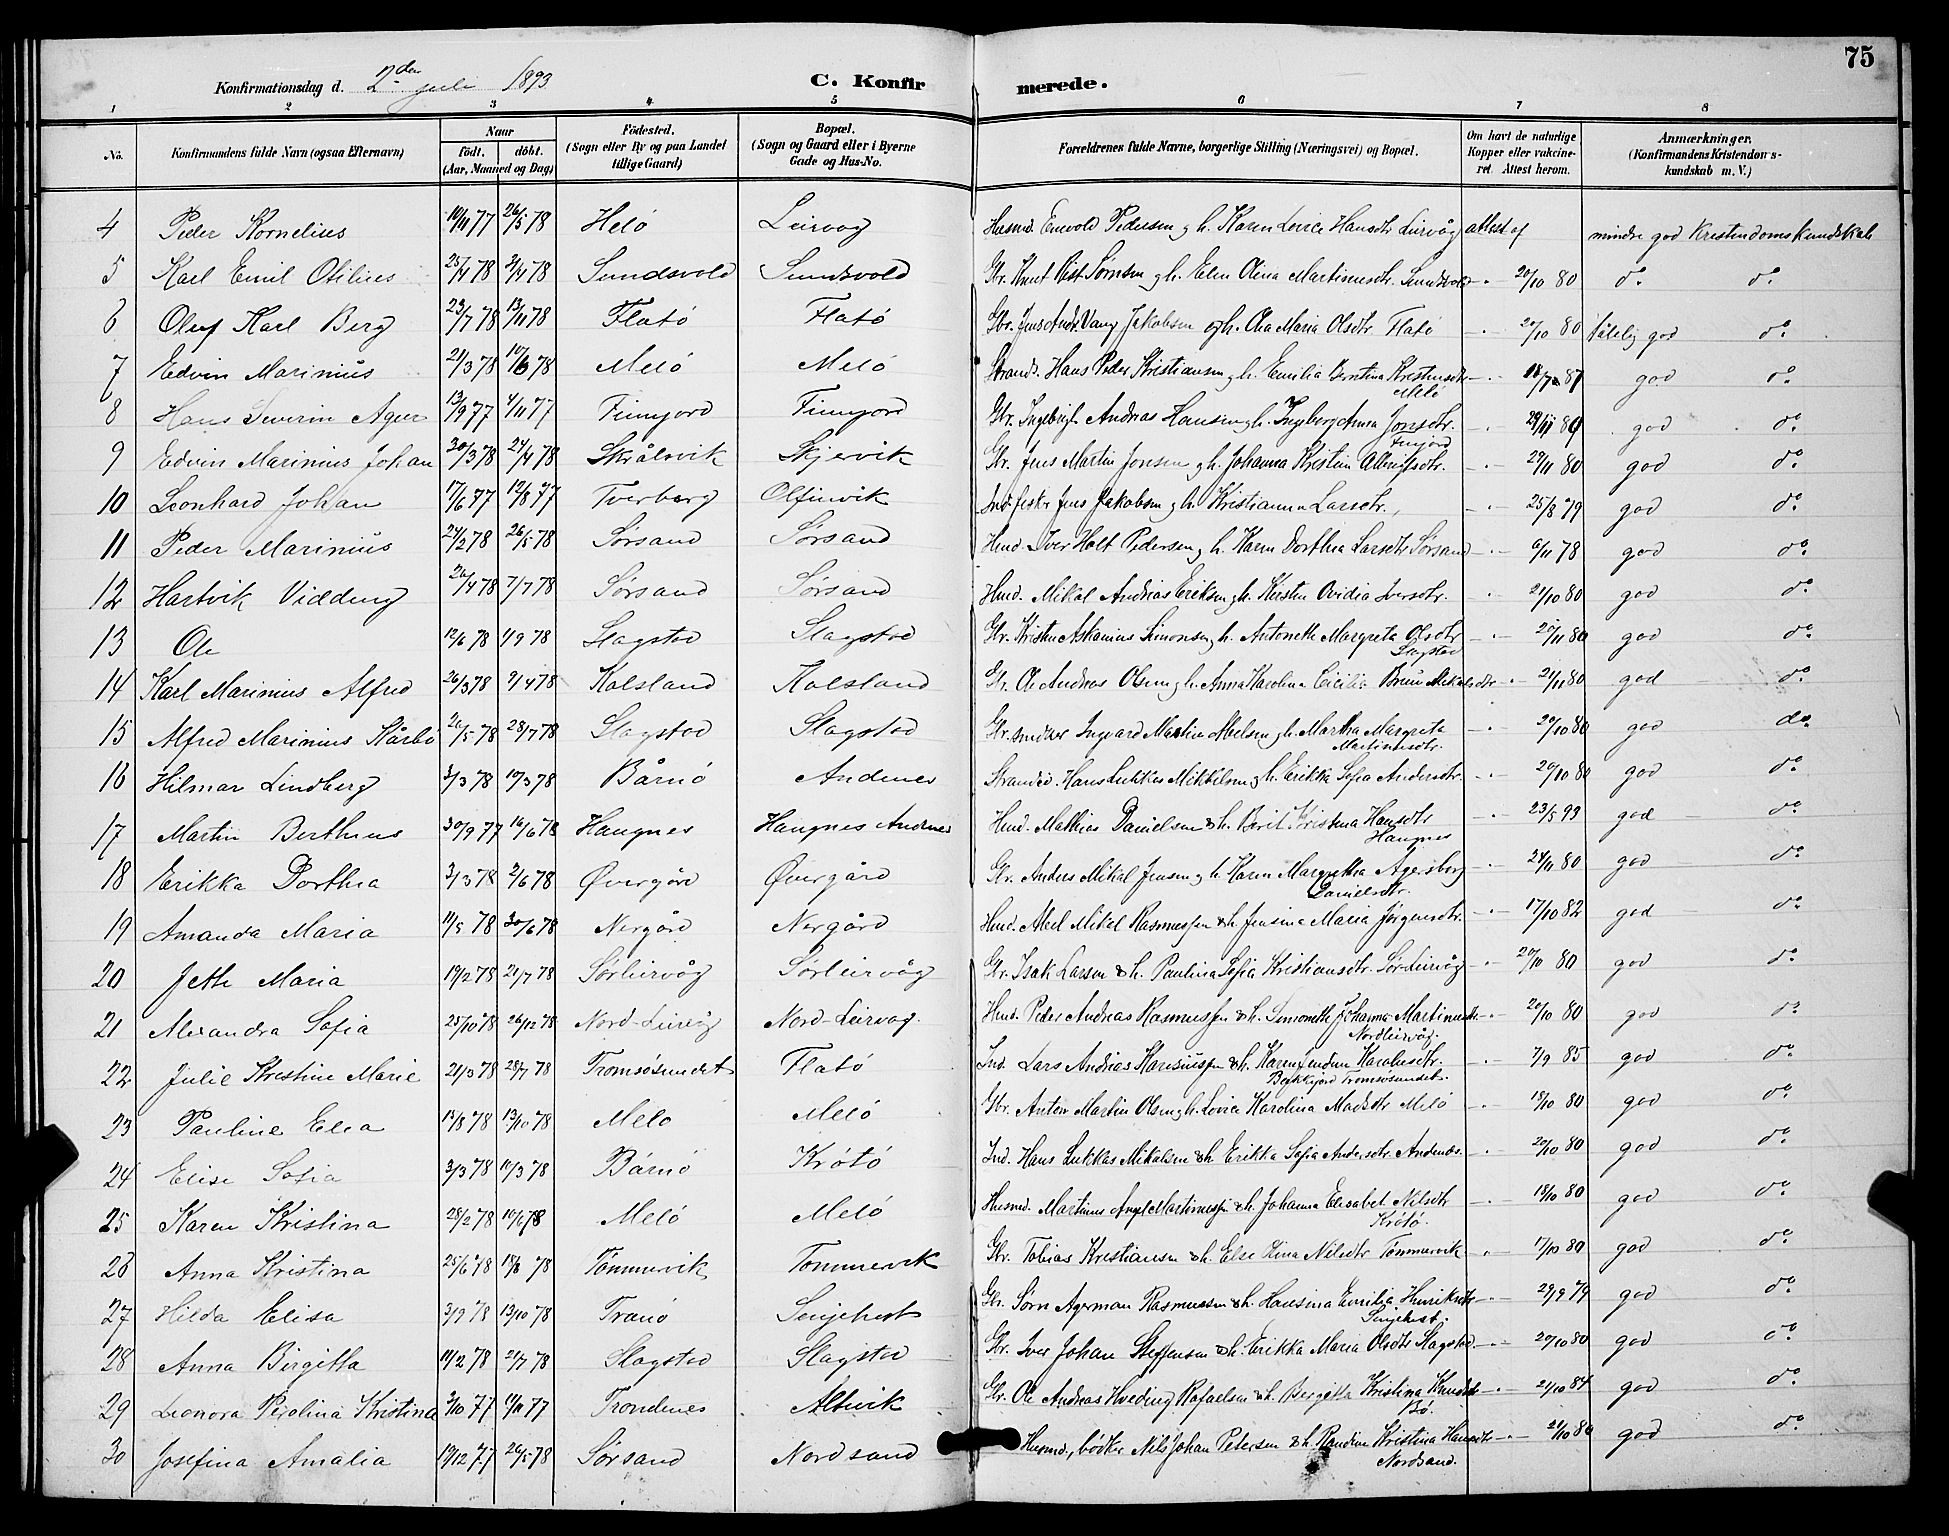 75
Konfirmationsdag d. 2den juli 1893
C. Konfirmerede.
1 2 3 4 5 6 7 8
No.
Konfirmandens fulde Navn (ogsaa Efternavn)
Naar
födt. döbt.
(Aar, Maaned og Dag)
Födested.
(Sogn eller By og paa Landet
tillige Gaard)
Bopæl.
(Sogn og Gaard eller i Byerne
Gade og Hus-No.
Forældrenes fulde Navne, borgerlige Stilling (Næringsvei) og Bopæl.
Om havt de naturlige
Kopper eller vakcine-
ret Attest herom.
Anmærkninger.
(Konfirmandens Kristendoms-
kundskab m. V.)
4 Peder Kornelius 10/11 77 26/5 78 Helö Leirvog Husmd. Enevold Pedersen g h. Karen Lovica Hansdtr Leirvåg attest af mindre god Kristendomskundskab
5 Karl Emil Otilius 25/4 78 Sundsvold Sundsvold Gbr. Knut Sörnsen g h. Elen Olina Martinusdtr. Sundsvold 20/10 80 do do
6 Oluf Karl Berg 23/7 78 13/11 78 Flatö Flatö Gbr. Jens Andr. Vang Jakobsen og h. Olea Maria Olsdtr Flatö 20/10 80 tålelig god do
7 Edvin Marinius 21/3 78 10/6 78 Melö Melö Strands. Hans Peder Kristiansen g h. Emilia Berntina Kristensdtr Melö 87 god do
8 Hans Severin Ager 13/9 77 4/11 77 Finnjord Finnjord Gbr. Ingebrigt Andreas Hansen g h. Ingeborg Anna Jonsdtr. Finjord god do
9 Edvin Marinius Johan 30/3 78 24/4 78 Skrålsvik Skjervik Gbr. Jens Martin Jonsen g h. Johanna Kristin Albrigtsdtr. 29/11 80 god do
10 Leonhard Johan 17/6 77 12/8 77 Tverberg Olfinvik Ind. fisker Jens Jakobsen g h. Kristianna Larsdtr. 25/8 79 god do
11 Peder Marinius 24/2 78 26/5 78 Sörsand Sörsand Hmd. Iver Holt Pedersen g h. Karen Dorthea Larsdtr Sörsand 6/11 78 god do
12 Hartvik Vidding 26/4 78 7/7 78 Sörsand Sörsand Hmd. Mikal Andreas Eriksen g h. Kirsten Ovidia Iversdtr. 21/10 80 god do
13 Ole 12/6 78 1/9 78 Slagstad Slagstod Gbr. Kristen Askanius Simonsen g h. Antonette Margreta Olsdtr Slagstod 20/11 80 god do
14 Karl Marinius Alfred 26/3 78 9/4 78 Kalsland Kalsland Gbr. Ole Andreas Olsen g h. Anna Karolina Cecilia Brun Mikalsdtr 21/11 80 god do
15 Alfred Marinius Kårbö 20/5 78 28/7 78 Slagstod Slagstod Gbr. snedker Ingvard Martin Abelsen g h. Martha Margreta Martinusdtr. 20/10 80 god do
16 Hilmar Lindberg 3/3 78 10/3 78 Bårnö Andenes Strands. Hans Lukkas Mikkelsen g h. Erikka Sofia Andersdtr. 20/10 80 god do
17 Martin Bertheus 30/9 77 16/6 78 Hangnes Hangnes Andenes Hmd. Mathias Danielsen & h. Berit Kristina Hansdtr Hangnes 23/5 93 god do
18 Erikka Dorthea 3/3 78 2/6 78 Øvergård Øvergård Gbr. Anders Mikal Jensen g h. Karen Margretha Agersborg Danielsdtr. 24/11 80 god do
19 Amanda Maria 11/5 78 30/6 78 Nergård Nergård Hmd. Abel Mikal Rasmussen & h. Jensina Maria Jörgensdtr. 17/10 82 god do
20 Jette Maria 19/2 78 21/7 78 Sörleirvåg Sörleirvåg Gbr. Isak Larsen & h. Paulina Sofia Kristiansdtr. Sör-Leirvåg 20/10 80 god do
21 Alexandra Sofia 25/10 78 26/12 78 Nord-Leirvåg Nord-Leirvag. Hmd. Peder Andreas Rasmussen & h. Simonette Johanna Martinusdtr Nordleirvåg. 20/10 80 god do
22 Julie Kristine Marie 21/3 78 28/7 78 Tromsösundet Flatö Ind. Lars Andreas Hansen & h. Karen Jendine Karolusdtr. Bakkejord Tromsösundet. 7/9 85 god do
23 Pauline Elea 13/8 78 13/10 78 Melö Melö Gbr. Anton Martin Olsen g h. Lovica Karolina Madsdtr Melö 18/10 80 god do
24 Elise Sofia 3/3 78 10/3 78 Bårnö Krötö Ind. Hans Lukkas Mikalsen & h. Erikka Sofia Andersdtr. Andenæs. 20/10 80 god do
25 Karen Kristina 28/2 78 10/6 78 Melö Melö Husmd. Martinus Angel Martinussen & h. Johanna Elisabet Nilsdtr Krötö. 18/10 80 god do
26 Anna Kristina 25/6 78 18/8 78 Tömmervik Tommervik Gbr. Tobias Kristiansen & h. Else Olina Nilsdtr Tömmervik 17/10 80 god do
27 Hilda Elisa 3/9 78 13/10 78 Tranö Senjehest Gbr. Sörn Agerman Rasmussen & h. Hansina Emilia Henriksdtr Senjehest. 29/9 79 god do
28 Anna Birgitta 11/2 78 21/7 78 Slagstod Slagstod Gbr. Iver Johan Steffensen & h. Erikka Maria Olsdtr Slagstod 20/10 80 god do
29 Leonora Perolina Kristina 3/10 77 11/11 77 Trondenes Altevik Gbr. Ole Andreas Hveding Rafaelsen & h. Bergitta Kristina Knudsdtr Bö. 21/10 84 god do
30 Josefina Amalia 19/12 77 26/5 78 Sörsand Nordsand Husmd., bödker Nils Johan Petersen & h. Randine Kristina Hansdtr Nordsand. 21/10 80 god do